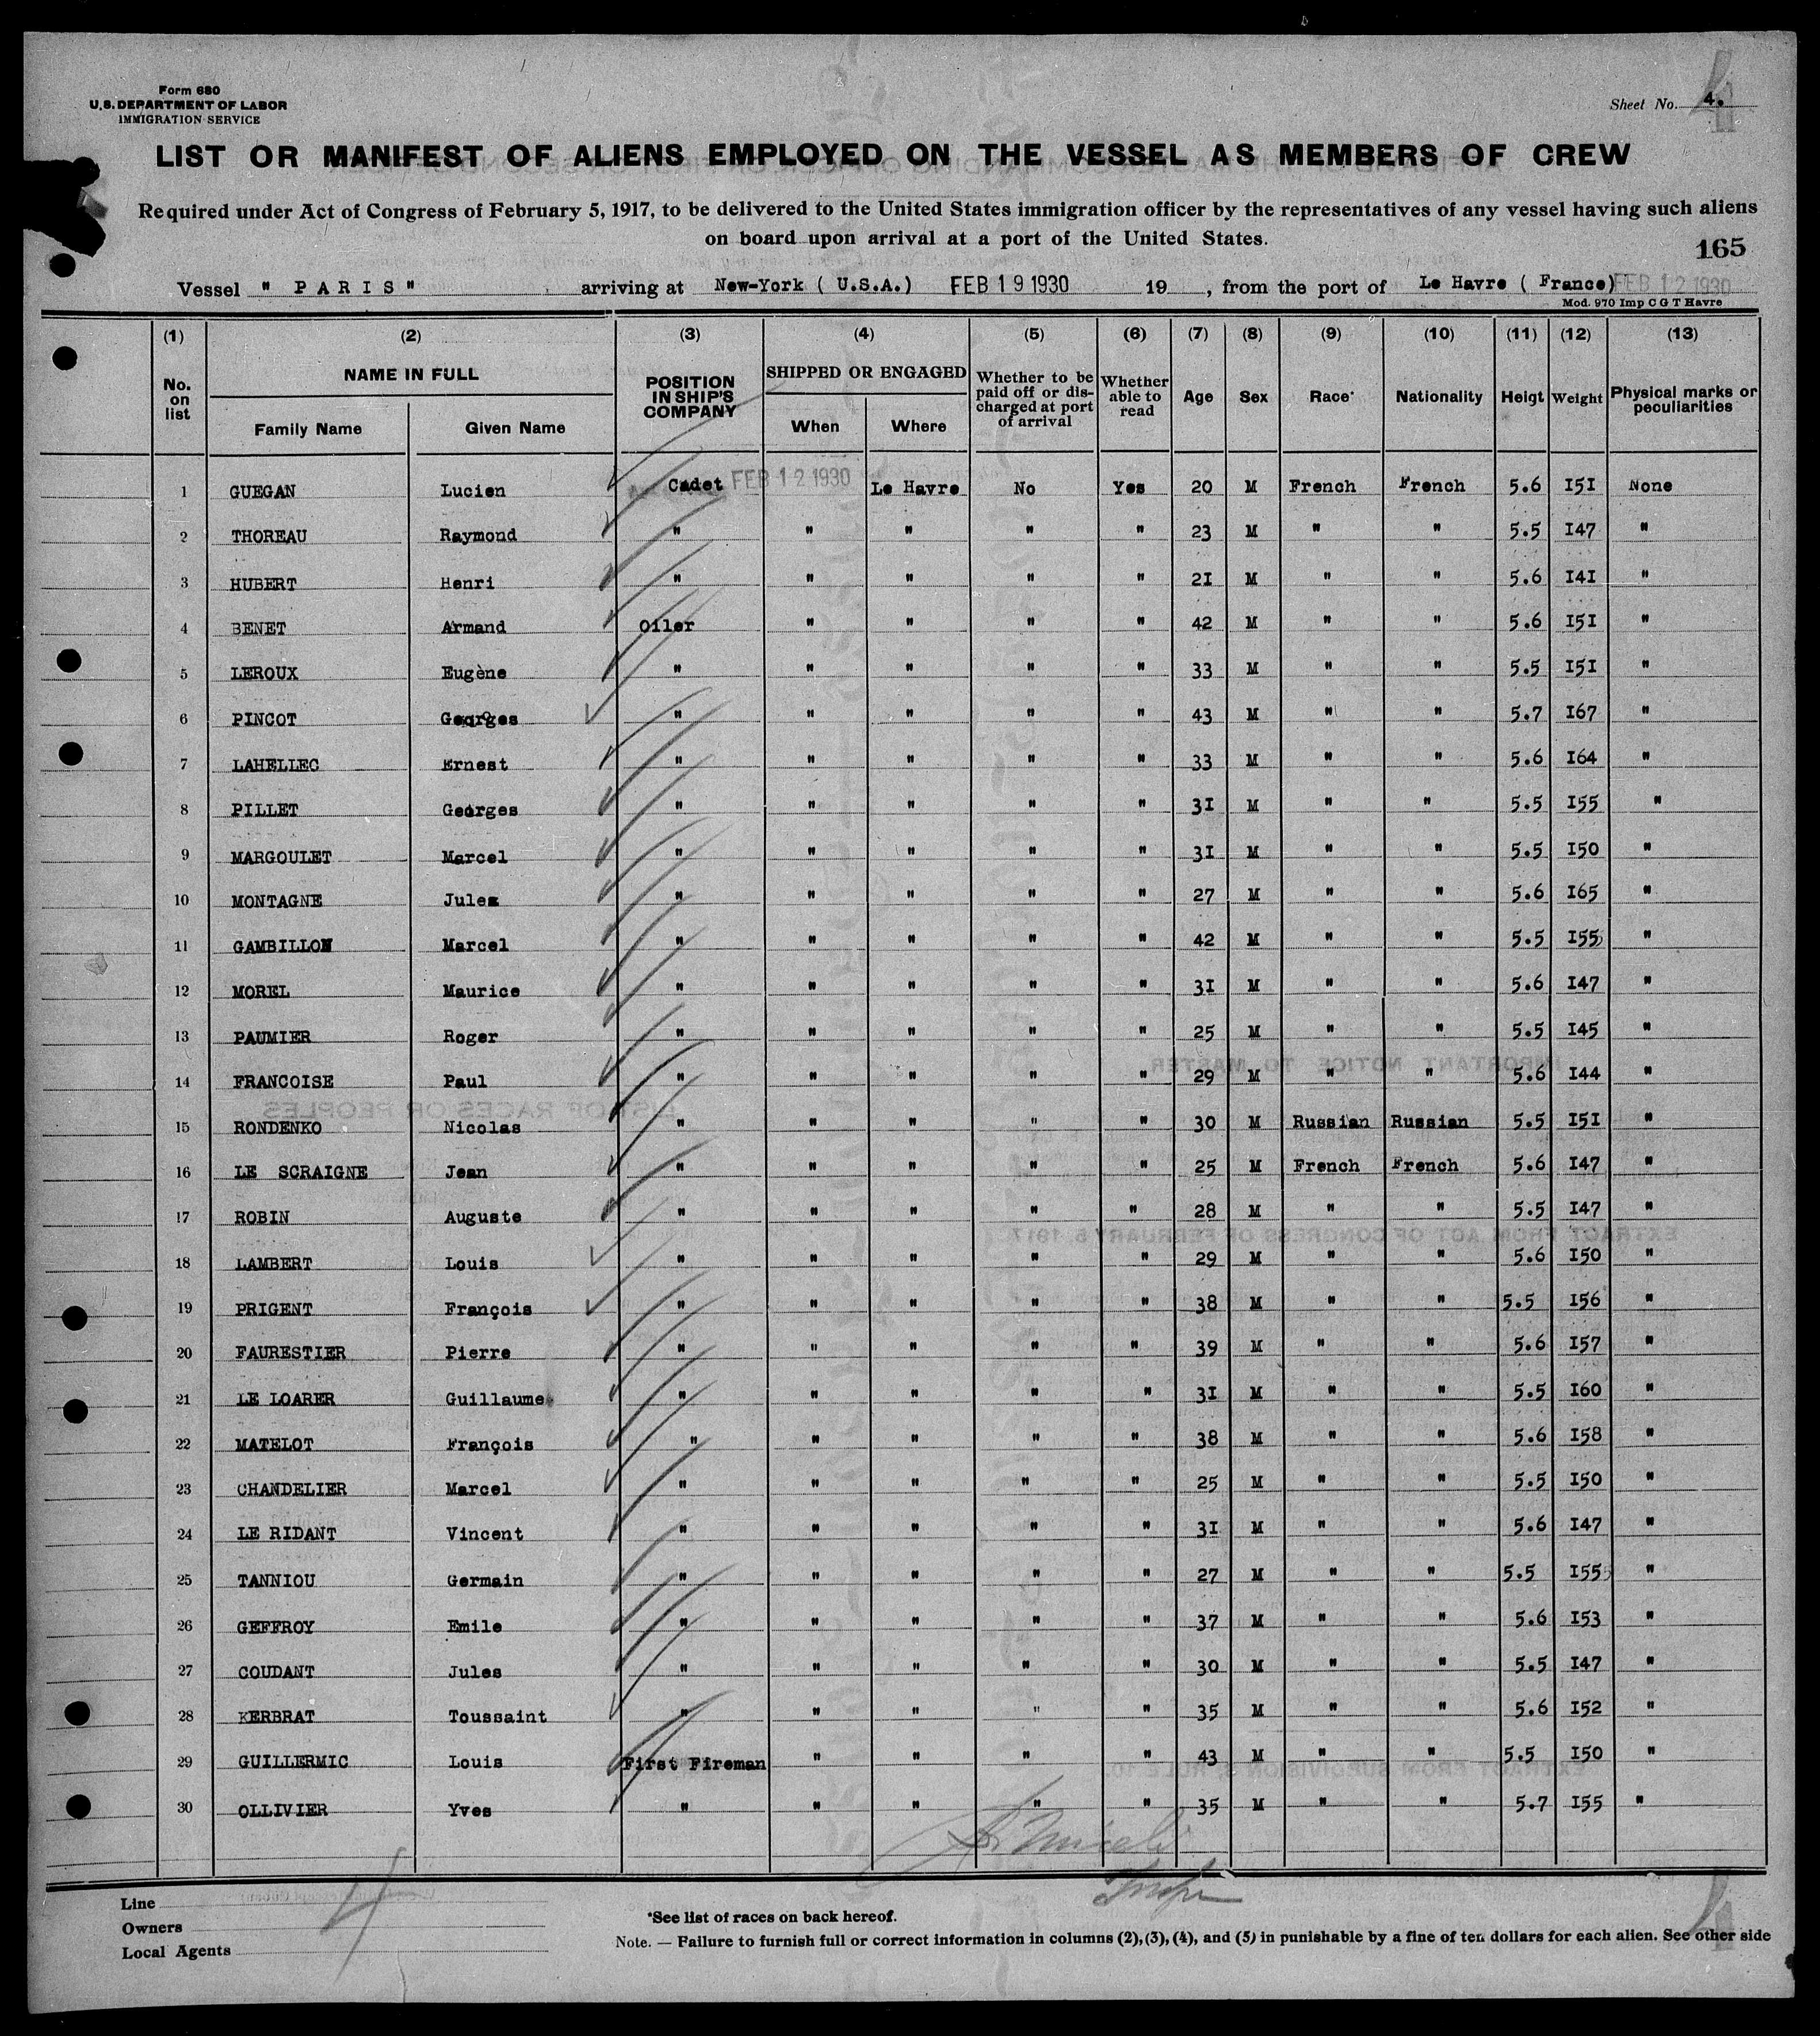 Form 680
U.S. DEPARTMENT OF LABOR
IMMIGRATION SERVICE
Sheet No. 4.
4
LIST OR MANIFEST OF ALIENS EMPLOYED ON THE VESSEL AS MEMBERS OF CREW
Required under Act of Congress of February 5, 1917, to be delivered to the United States immigration officer by the representatives of any vessel having such aliens
on board upon arrival at a port of the United States.
165
Vessel " P A R I S " arriving at New-York ( U.S.A.) FEB 19 1930 19 , from the port of Le Havre ( France) FEB 12 1930
Mod. 970 Imp C G T Havre
(1) (2) (3) (4) (5) (6) (7) (8) (9) (10) (11) (12) (13)
No. on list NAME IN FULL Family Name Given Name POSITION IN SHIP'S COMPANY SHIPPED OR ENGAGED When Where Whether to be paid off or discharged at port of arrival Whether able to read Age Sex Race* Nationality Heigt Weight Physical marks or peculiarities
1 GUEGAN Lucien Cadet FEB 12 1930 Le Havre No Yes 20 M French French 5.6 I5I None
2 THOREAU Raymond " " " " " 23 M " " 5.5 I47 "
3 HUBERT Henri " " " " " 2I M " " 5.6 I4I "
4 BENET Armand Oiler " " " " 42 M " " 5.6 I5I "
5 LEROUX Eugène " " " " " 33 M " " 5.5 I5I "
6 PINCOT Georges " " " " " 43 M " " 5.7 I67 "
7 LAHELLEC Ernest " " " " " 33 M " " 5.6 I64 "
8 PILLET Georges " " " " " 3I M " " 5.5 I55 "
9 MARGOULET Marcel " " " " " 3I M " " 5.5 I50 "
10 MONTAGNE Jules " " " " " 27 M " " 5.6 I65 "
11 GAMBILLON Marcel " " " " " 42 M " " 5.5 I55 "
12 MOREL Maurice " " " " " 3I M " " 5.6 I47 "
13 PAUMIER Roger " " " " " 25 M " " 5.5 I45 "
14 FRANCOISE Paul " " " " " 29 M " " 5.6 I44 "
15 RONDENKO Nicolas " " " " " 30 M Russian Russian 5.5 I5I "
16 LE SCRAIGNE Jean " " " " " 25 M French French 5.6 I47 "
17 ROBIN Auguste " " " " " 28 M " " 5.5 I47 "
18 LAMBERT Louis " " " " " 29 M " " 5.6 I50 "
19 PRIGENT François " " " " " 38 M " " 5.5 I56 "
20 FAURESTIER Pierre " " " " " 39 M " " 5.6 I57 "
21 LE LOARER Guillaume " " " " " 3I M " " 5.5 I60 "
22 MATELOT François " " " " " 38 M " " 5.6 I58 "
23 CHANDELIER Marcel " " " " " 25 M " " 5.5 I50 "
24 LE RIDANT Vincent " " " " " 3I M " " 5.6 I47 "
25 TANNIOU Germain " " " " " 27 M " " 5.5 I55 "
26 GEFFROY Emile " " " " " 37 M " " 5.6 I53 "
27 COUDANT Jules " " " " " 30 M " " 5.5 I47 "
28 KERBRAT Toussaint " " " " " 35 M " " 5.6 I52 "
29 GUILLERMIC Louis First Fireman " " " " 43 M " " 5.5 I50 "
30 OLLIVIER Yves " " " " " 35 M " " 5.7 I55 "
Line
Owners
Local Agents
4
*See list of races on back hereof.
Note. — Failure to furnish full or correct information in columns (2), (3), (4), and (5) in punishable by a fine of ten dollars for each alien. See other side
4